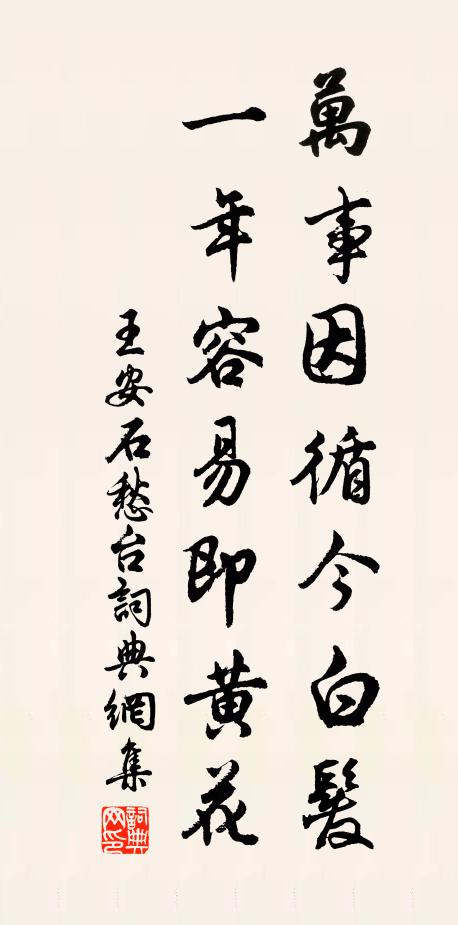 萬事因循今白髮
一年容易即黃花
王安石愁台詞典網集
詞典網印